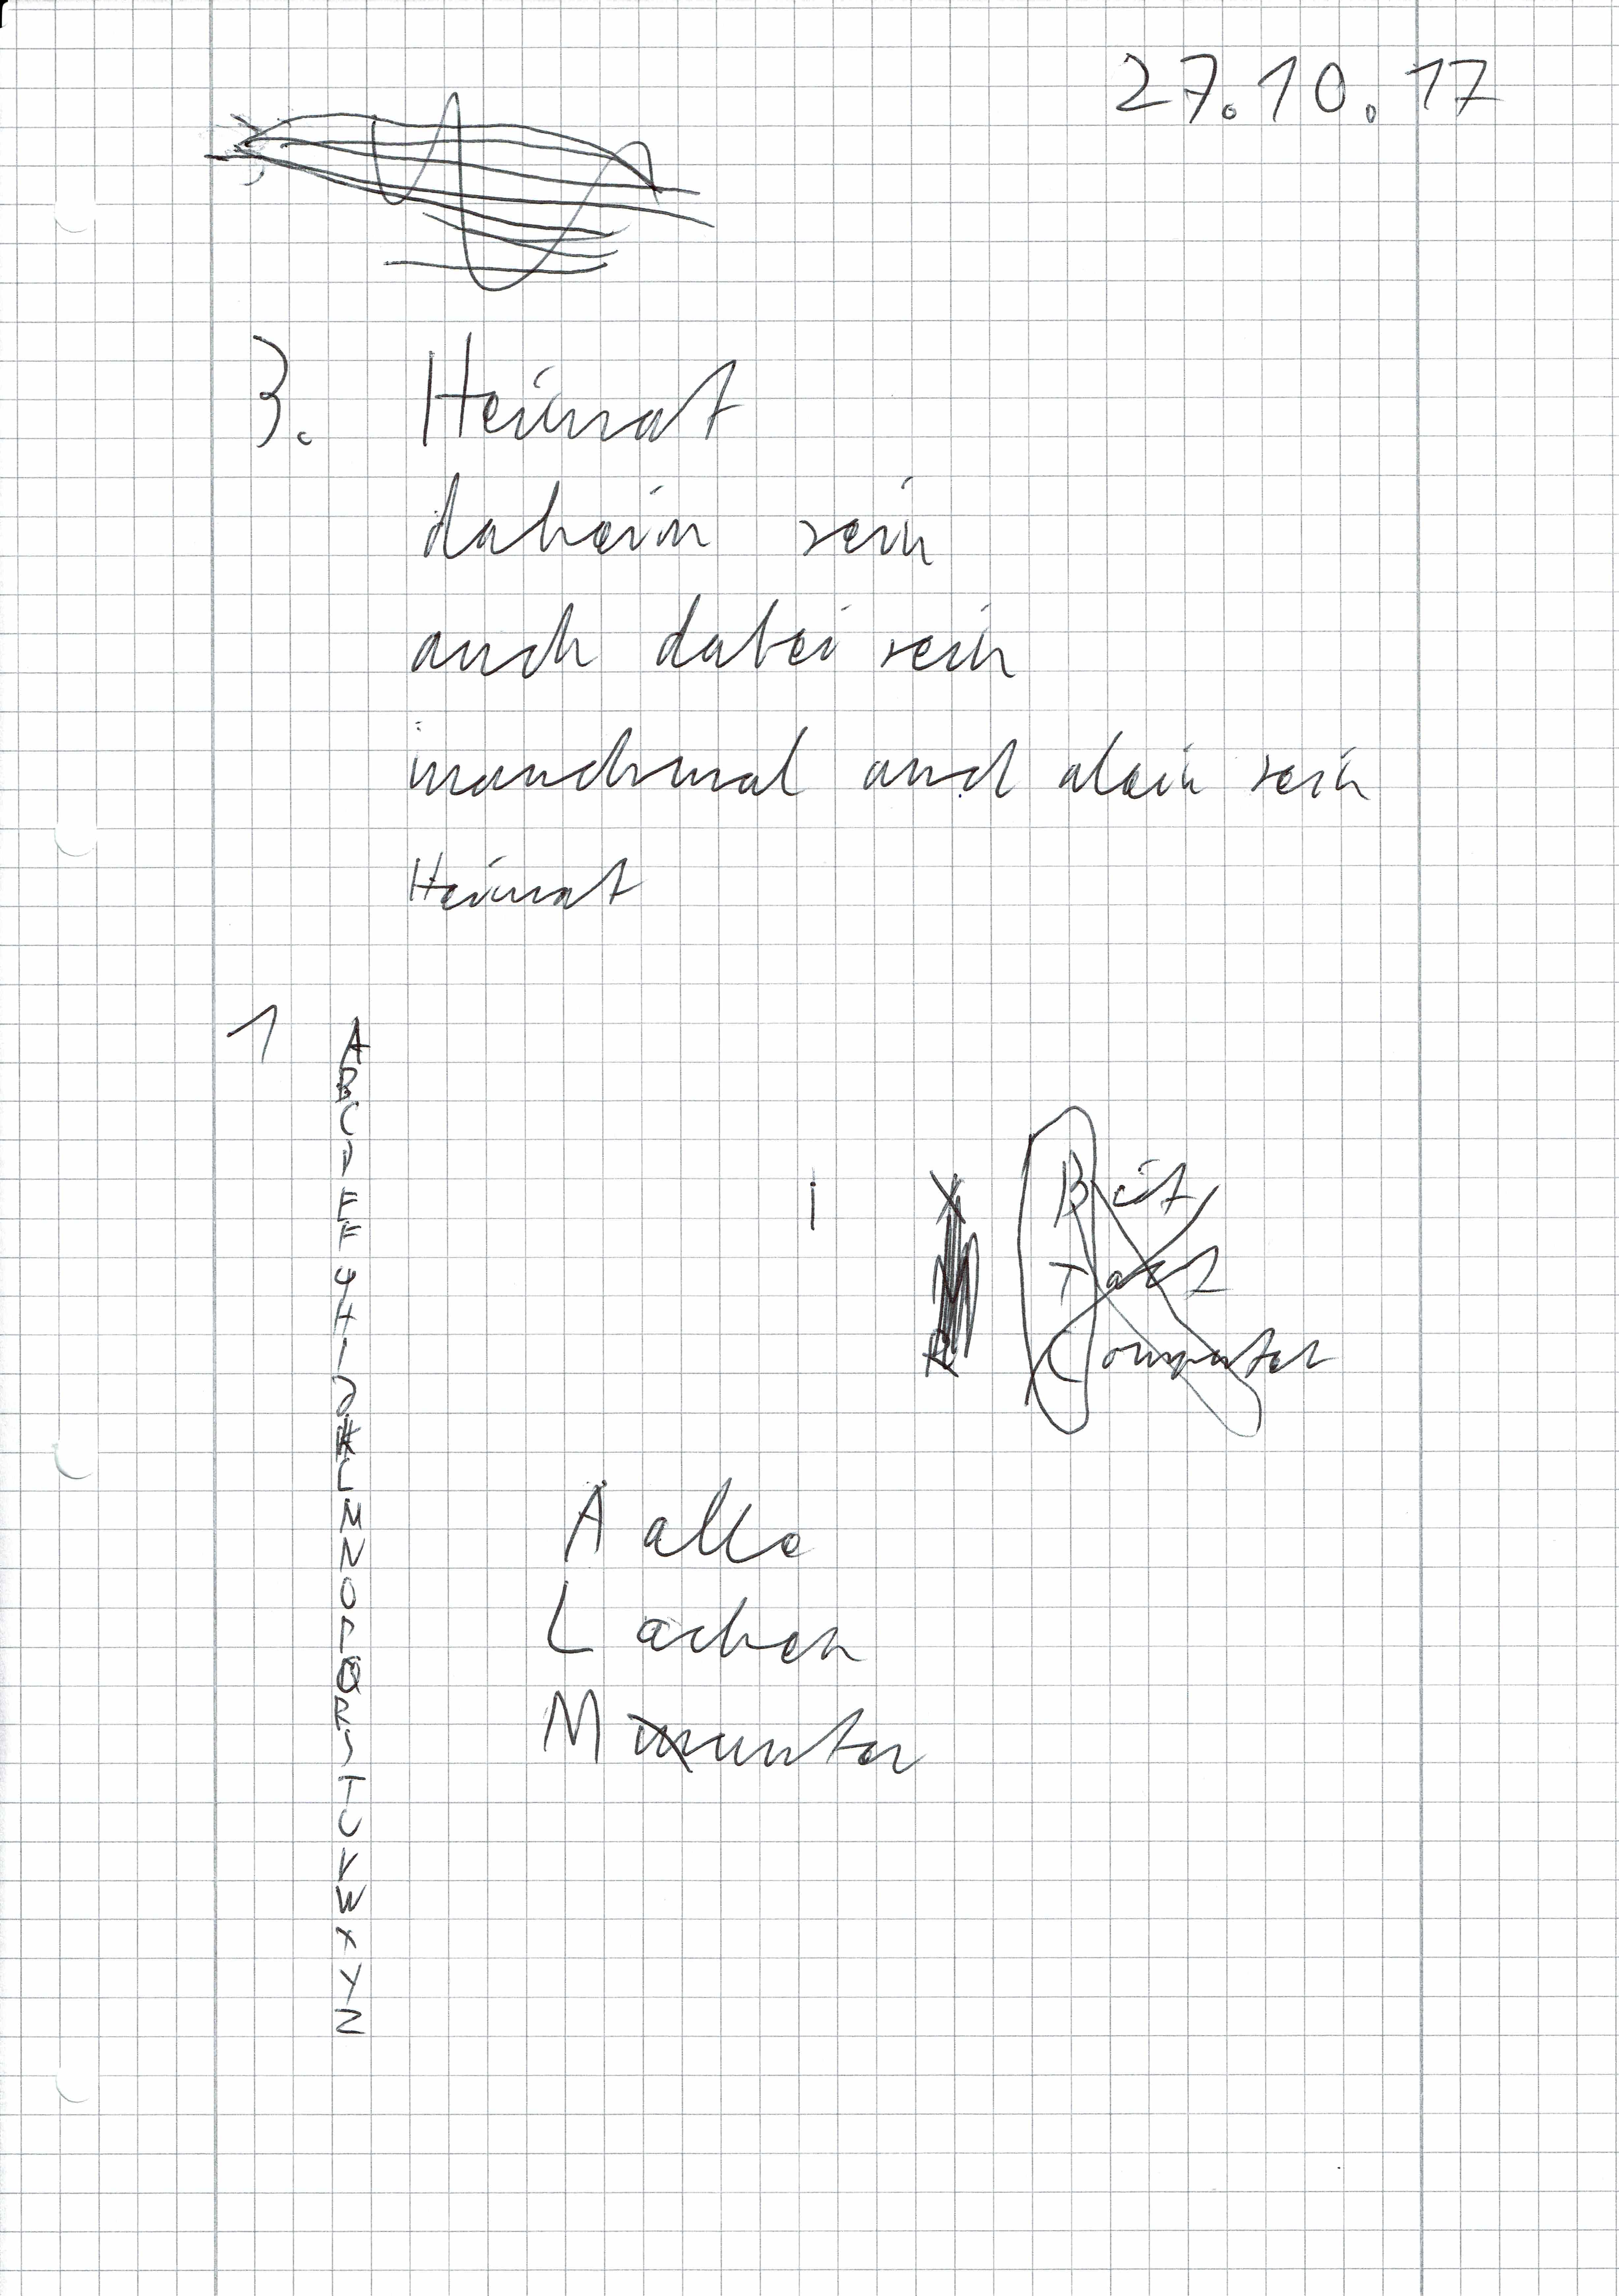 27.10.17
3. Heimat
daheim sein
auch dabei sein
manchmal auch alein sein
Heimat
1
A
B
C
D
E
F
G
H
I
J
K
L
M
N
O
P
Q
R
S
T
U
V
W
X
Y
Z
i
B
T
Computer
A alle
L achen
M munter